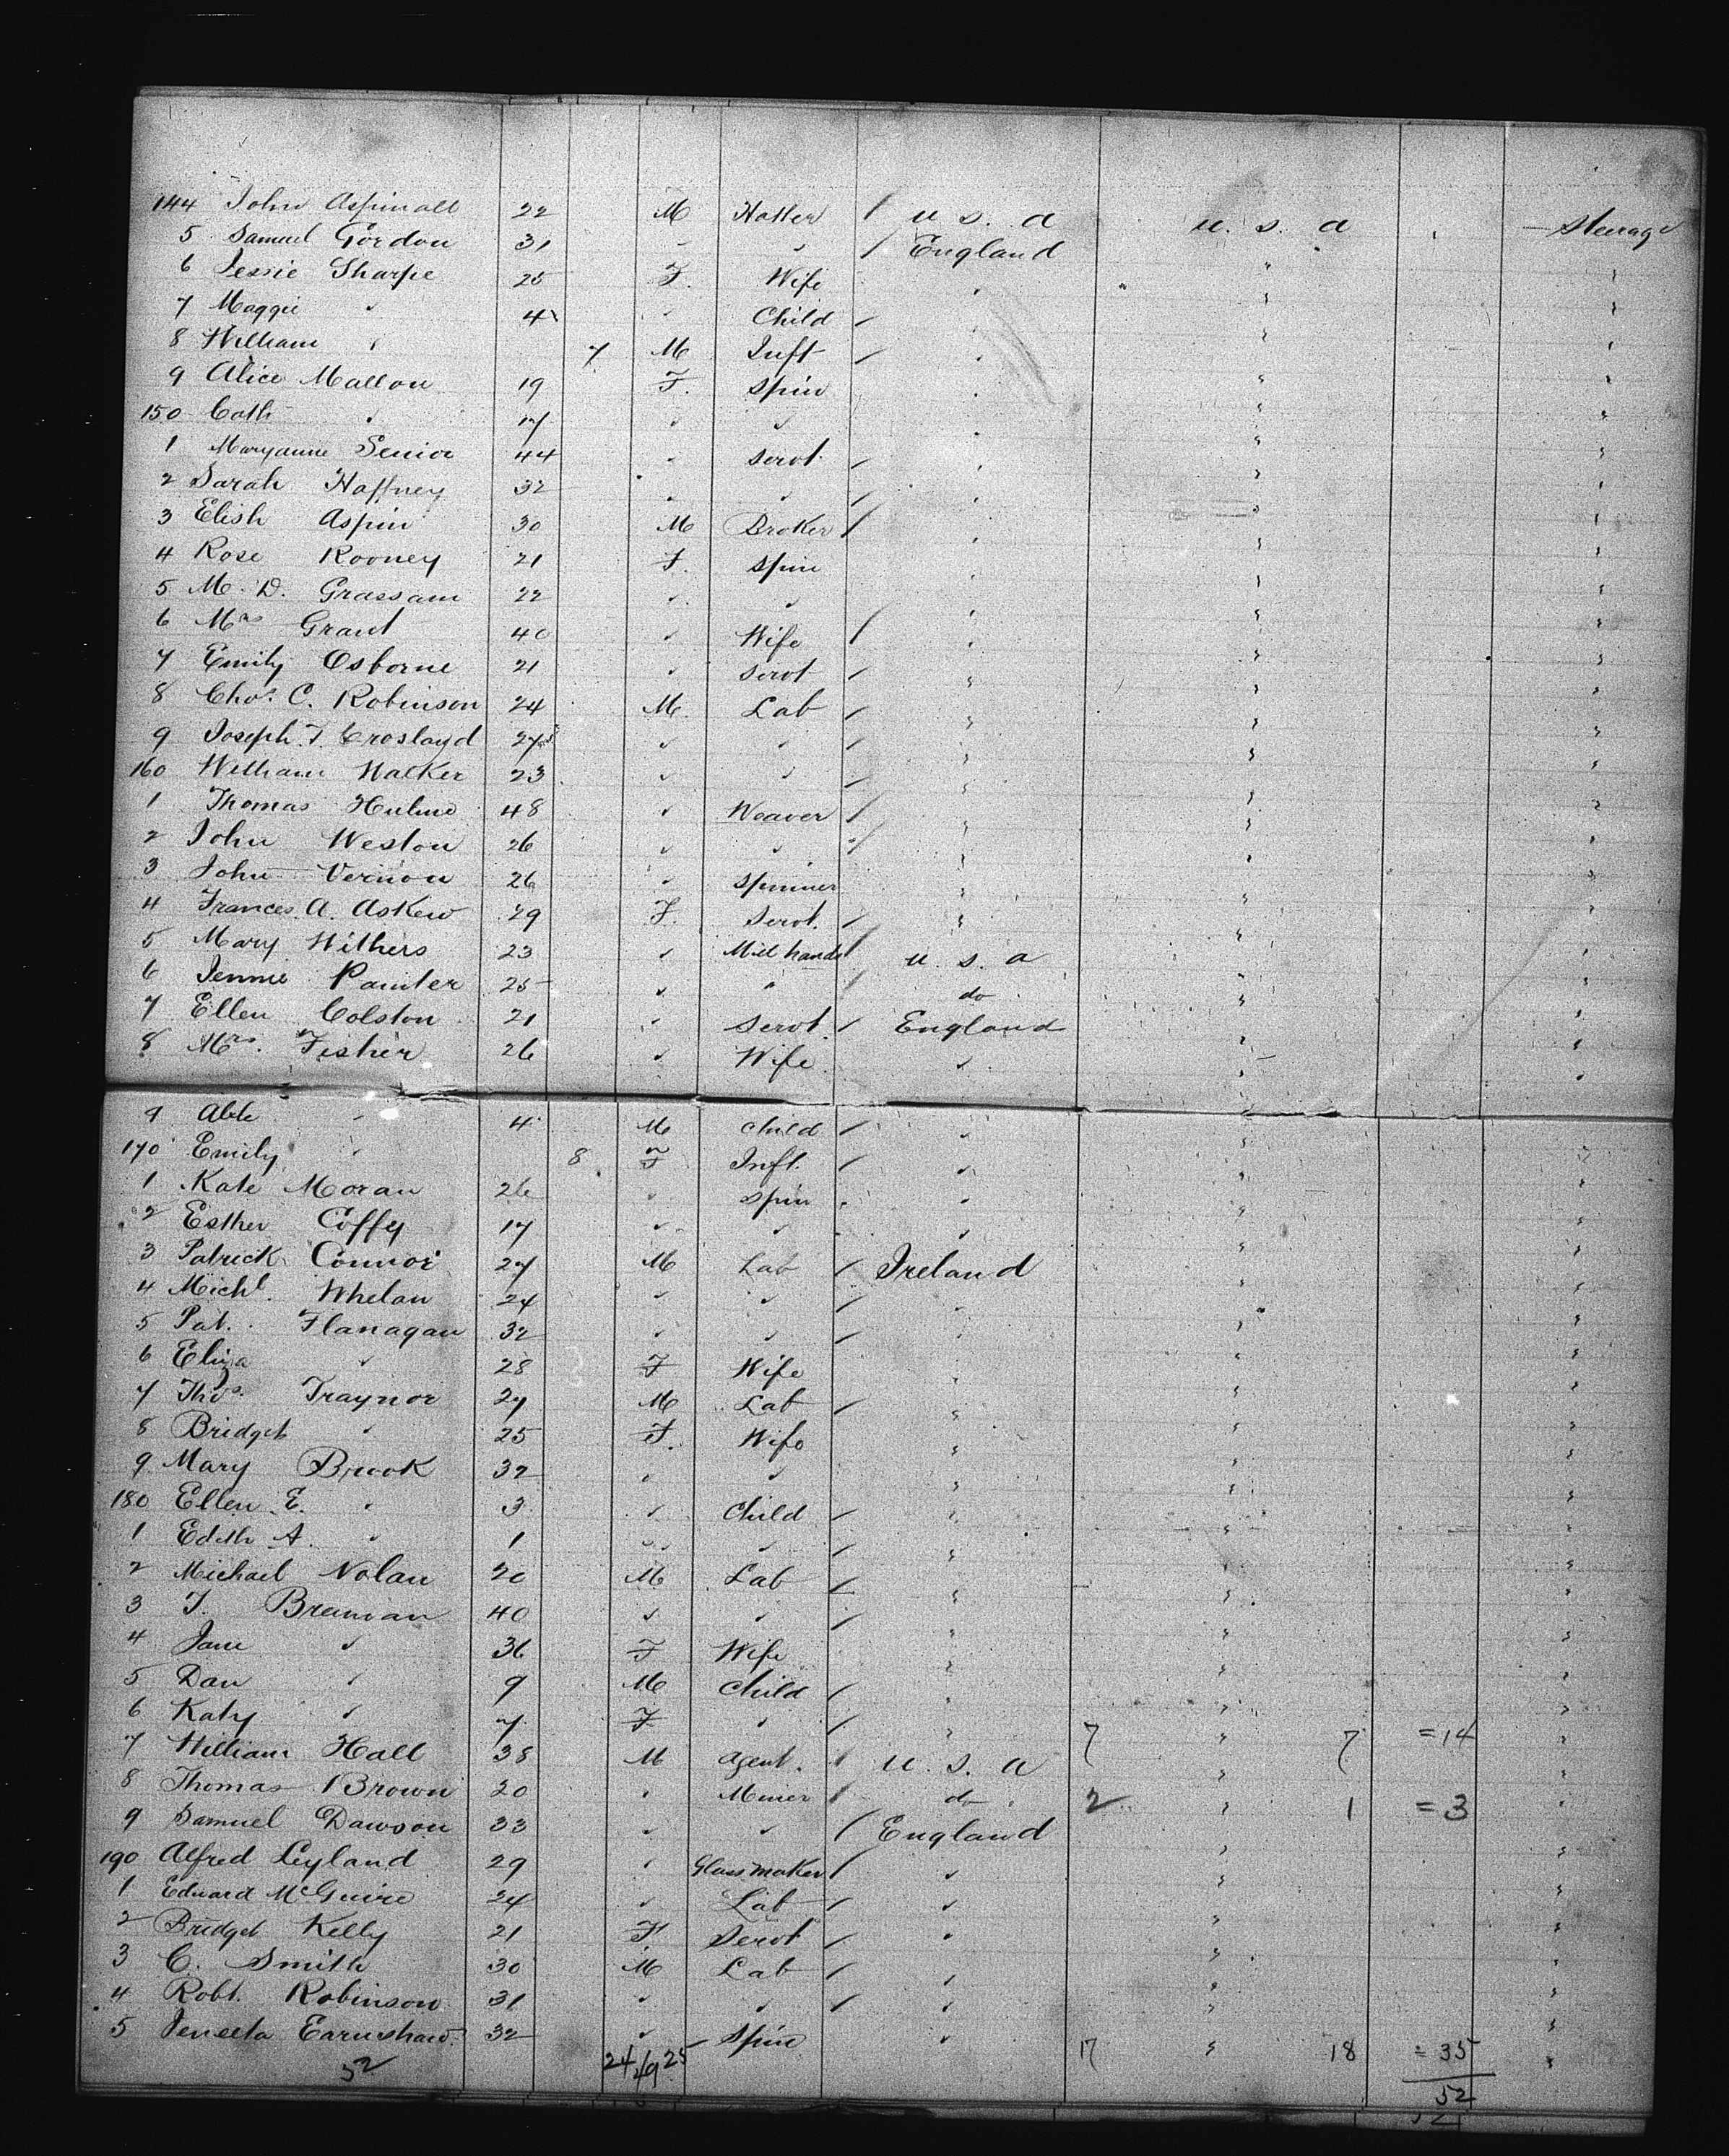 144 John Aspinall 22 M Hatter / U. S. A U. S. A Steerage
5 Samuel Gordon 31 " " / England " "
6 Jessie Sharpe 25 F. Wife " " "
7 Maggie " 4 " Child / " " "
8 William " 7 M Inft / " " "
9 Alice Mallon 19 F. Spin " " "
150 Cath " 17 " " " " "
1 Maryanne Senior 44 " Servt. / " " "
2 Sarah Haffney 32 " " / " " "
3 Elish Aspin 30 M Broker / " " "
4 Rose Rooney 21 F. Spin " " "
5 M. D. Grassam 22 " " " " "
6 Mrs Grant 40 " Wife / " " "
7 Emily Osborne 21 " Servt / " " "
8 Chas. C. Robinson 24 M. Lab / " " "
9 Joseph. T. Crosland 27 " " / " " "
160 William Walker 23 " " / " " "
1 Thomas Hulme 48 " Weaver / " " "
2 John Weston 26 " " / " " "
3 John Vernon 26 " Spinner " " "
4 Frances. A. Askew 29 F. Servt. / " " "
5 Mary Withers 23 " Mill hands / U. S. A " "
6 Jennie Painter 25 " " / do " "
7 Ellen Colston 21 " Servt. / England " "
8 Mrs. Fisher 26 " Wife " " "
9 Able " 4 M Child / " " "
170 Emily " 8 F Inft. / " " "
1 Kate Moran 26 " Spin " " "
2 Esther Coffy 17 " " " " "
3 Patrick Connor 27 M Lab / Ireland " "
4 Michl. Whelan 24 " " / " " "
5 Pat. Flanagan 32 " " / " " "
6 Eliza " 28 F Wife " " "
7 Thos. Traynor 27 M Lab / " " "
8 Bridget " 25 F. Wife " " "
9 Mary Brook 32 " " " " "
180 Ellen E. " 3 " Child / " " "
1 Edith A. " 1 " " / " " "
2 Michael Nolan 20 M Lab / " " "
3 T. Brennan 40 " " / " " "
4 Jane " 36 F Wife " " "
5 Dan " 9 M Child / " " "
6 Katy " 7 F " / " 7 " 7 = 14 "
7 William Hall 38 M Agent. / U. S. A " "
8 Thomas Brown 20 " Miner / do 2 " 1 = 3 "
9 Samuel Dawson 33 " " / England " "
190 Alfred Leyland 29 " Glass maker / " " "
1 Edward McGuire 24 " Lab / " " "
2 Bridget Kelly 21 F Servt / " " "
3 C. Smith 30 M Lab / " " "
4 Robt. Robinson 31 " " / " " "
5 Earnshaw 32 " Spin " 17 " 18 = 35 "
52 24 25 52